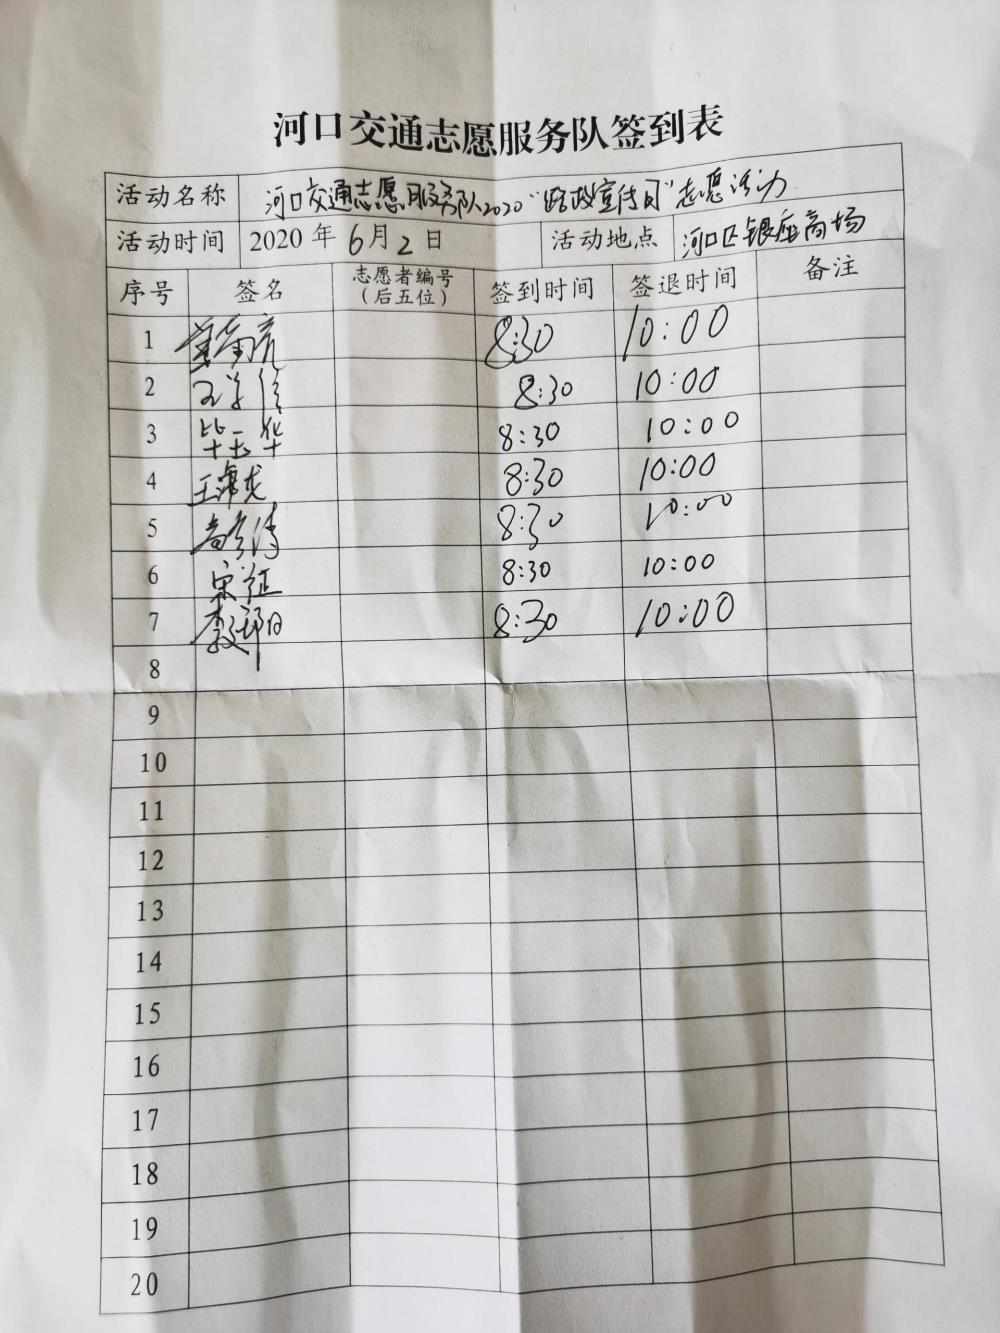 河口交通志愿服务队签到表
活动名称 河口交通志愿服务队2020“路政宣传月”志愿活动
活动时间 2020年6月2日 活动地点 河口区银座商场
序号 签名 志愿者编号（后五位） 签到时间 签退时间 备注
1 8:30 10:00
2 8:30 10:00
3 8:30 10:00
4 王 8:30 10:00
5 8:30 10:00
6 宋征 8:30 10:00
7 李 8:30 10:00
8
9
10
11
12
13
14
15
16
17
18
19
20